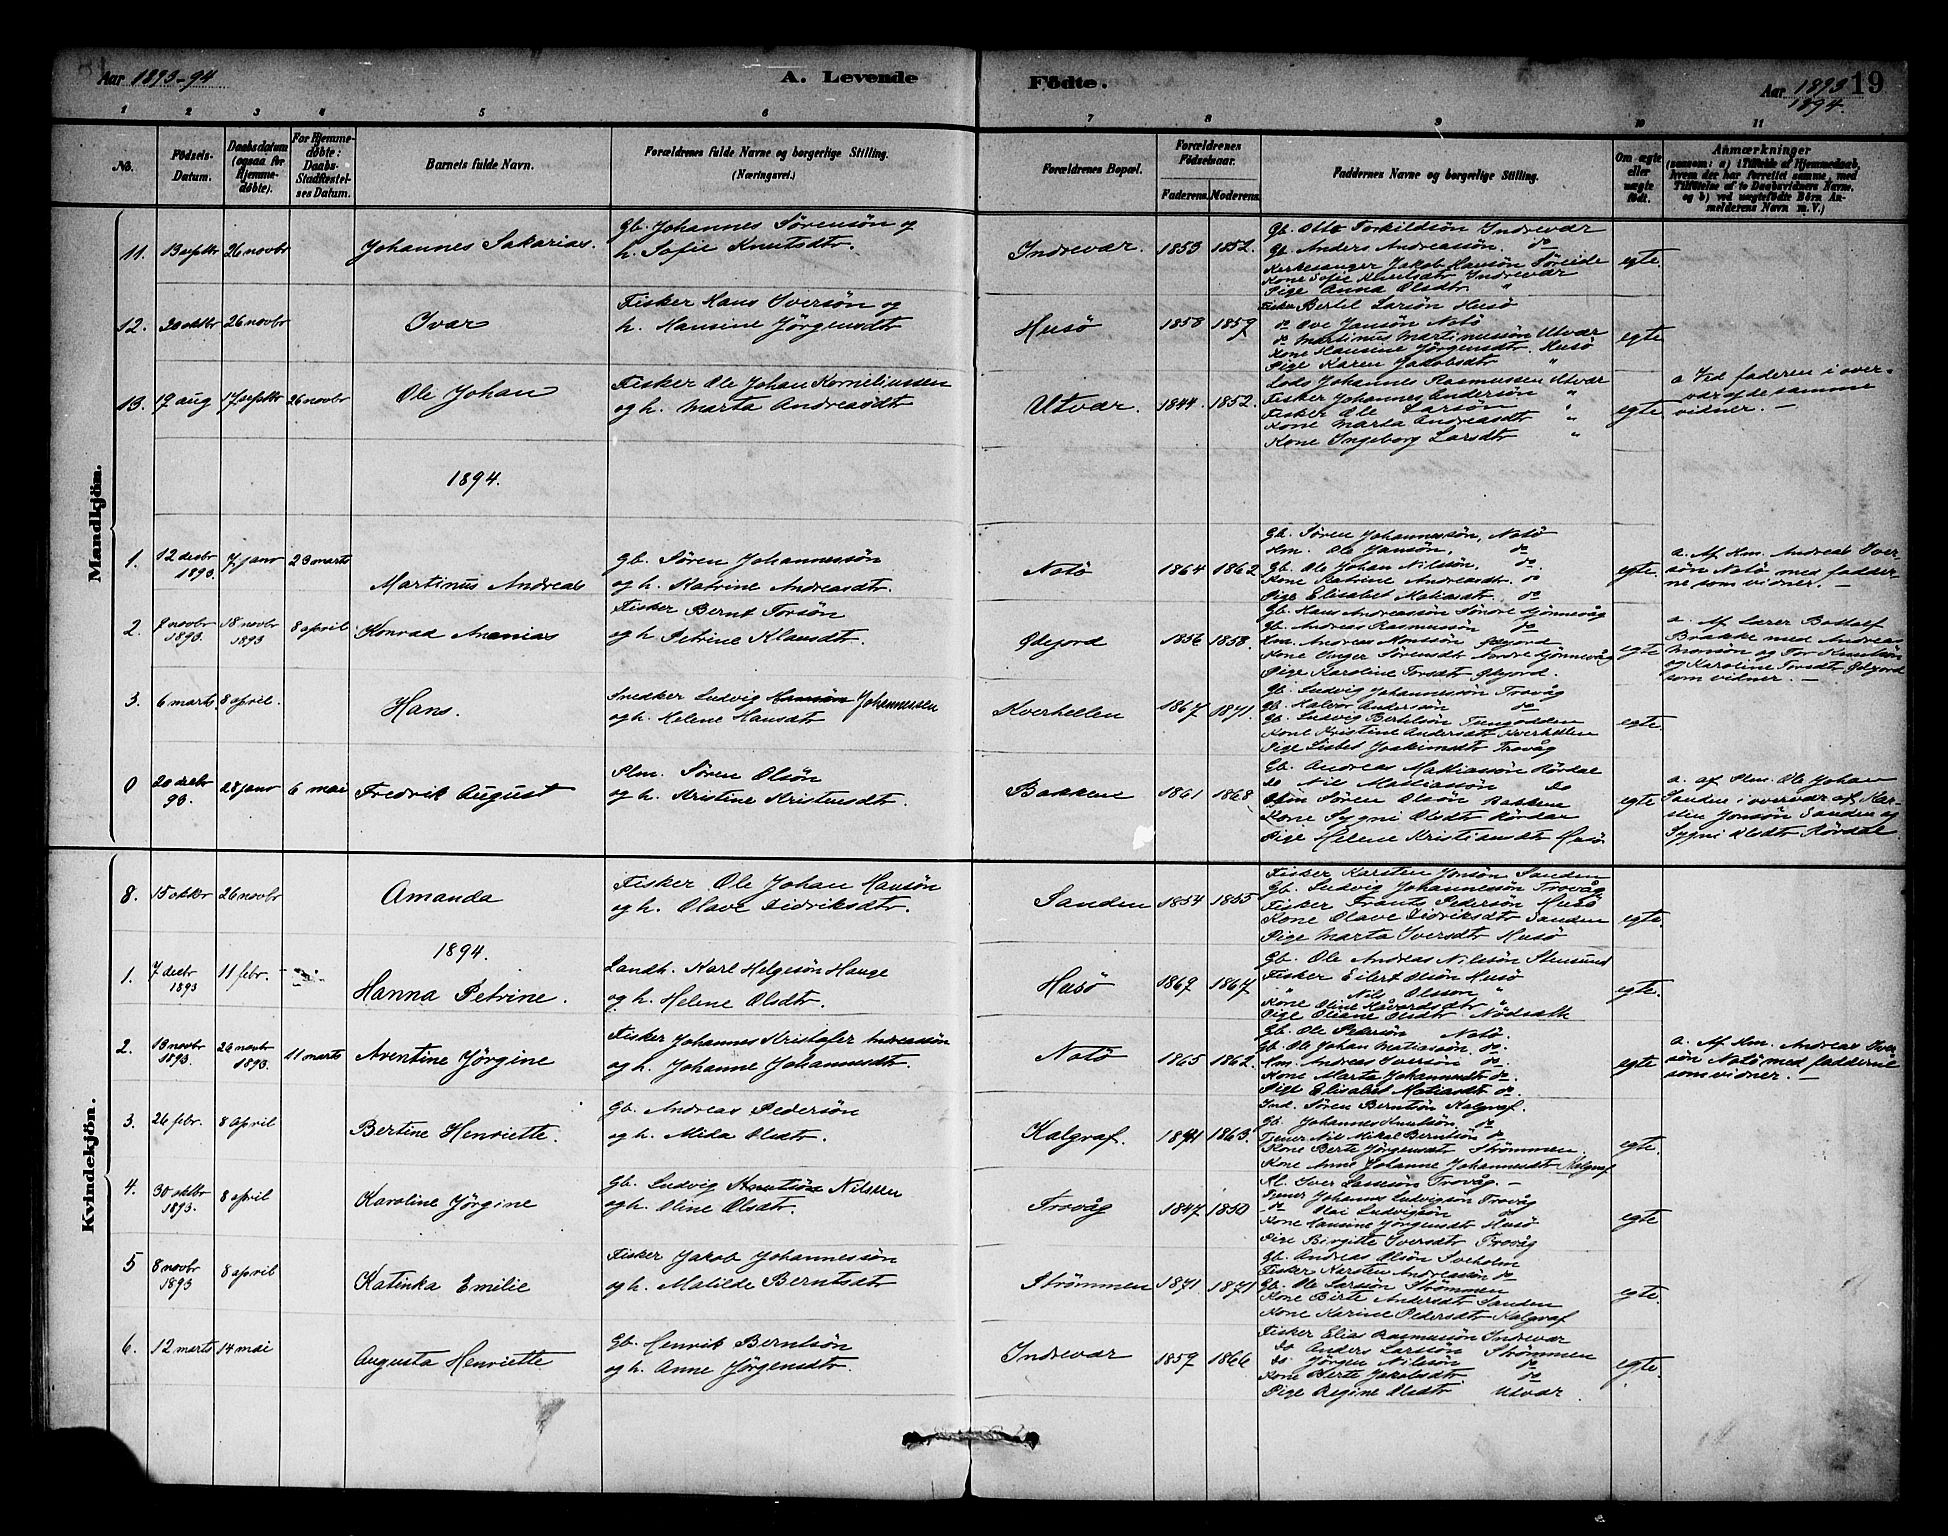 Aar 1893-94
A. Levende
Födte.
Aar 1893
1894.
19
1 2 3 4 5 6 7 8 9 10 11
No.
Födsels-
Datum.
Daabsdatum
(ogsaa for
Hjemme-
døbte).
For Hjemme-
døbte:
Daabs-
Stadfæstel-
ses Datum.
Barnets fulde Navn.
Forældrenes fulde Navne og borgerlige Stilling.
(Næringsvei.)
Forældrenes Bopæl.
Forældrenes
Födselsaar.
Faderens. Moderens.
Faddernes Navne og borgerlige Stilling.
Om ægte
eller
uægte
født.
Anmærkninger
(saasom: a) i Tilfælde af Hjemmedaab,
hvem der har forrettet samme, med
Tilföielse af to Daabsvidners Navne.
og b) ved uægtefödte Börn An-
melderens Navn m. V.)
Mandkjön.
11. 13 septbr 26 novbr Johannes Sakarias.
Gb. Johannes Sørensøn og
h. Sofie Knutsdtr.
Indrevær. 1853 1852.
Gb. Otto Torkildsøn Indrevær
Gb. Anders Andreassøn. do
Kirkesanger Jakob Hansøn Søreide
Kone Sofie Knutsdtr Indrevær
Pige Anna Olsdtr. "
egte.
12. 20 oktbr 26 novbr Ivar
Fisker Hans Iversøn og
h. Hansine Jørgensdtr
Husø 1858 1859
Fisker Bertel Larsøn Husø
do Ove Jansøn Notø
do Martinus Martinussøn Utvær
Kone Hansine Jørgensdtr. Husø
Pige Karen Jakobsdtr "
egte
13. 19 aug 17 septbr 26 novbr Ole Johan
Fisker Ole Johan Korneliussen
og h. Marta Andreasdtr
Utvær. 1844. 1852.
Lods Johannes Rasmussen Utvær
Fisker Johannes Andersøn "
Fisker Ole Larsøn "
Kone Marta Andreasdtr "
Kone Ingeborg Larsdtr "
egte
a Ved faderen i over-
vær af de samme
vidner. —
1894.
1. 12 desbr
1893. 7 janr 23 marts Martinus Andreas
Gb. Søren Johannessøn
og h. Katrine Andreasdtr.
Notø 1864 1862
Gb. Søren Johannessøn, Notø
Hm. Ole Jansøn, do
Gb. Ole Johan Nilssøn, do.
Kone Katrine Andreasdtr. do
Pige Elisabet Matiasdtr. do
egte.
a. Af Hm. Andreas Iver-
søn Notø med fadder-
ne som vidner. —
2. 8 novbr
1893. 18 novbr
1893 8 april Konrad Ananias
Fisker Bernt Torsøn
og h. Petrine Klausdtr.
Ødejord 1856 1858.
Gb. Hans Andreassøn Søndre Hjønnevåg
Gb. Andreas Rasmussøn do
Hm. Andreas Monssøn Ødejord
Kone Inger Sørensdtr Nordre Hjønnevåg
Pige Karoline Torsdtr Ødejord.
egte
a. Af Lærer Botolf
Brække med Andreas
Monsøn og Tor Knutsøn
og Karoline Torsdtr Ødejord
som vidner. —
3. 6 marts. 8 april. Hans.
Snedker Ludvig Hansøn Johannessen
og h. Helene Hansdtr
Kverhellen 1867 1871.
Gb. Ludvig Johannessøn Trovåg
Gb. Halvor Anderssøn do
Gb. Ludvig Bertelsøn Tungodden
Kone Kristine Andersdtr Kverhellen
Pige Lisbet Joakimsdtr Trovåg
egte.
0 20 desbr
93. 28 janr 6 mai Fredrik August
Plm. Søren Olsøn
og h. Kristine Kristensdtr.
Bakken 1861 1868.
Gb. Andreas Matiassøn Rørdal
do Nil Matiassøn do
Plm Søren Olsøn Bakken
Kone Sygni Olsdtr Rørdal
Pige Helene Kristiansdtr Husø
egte
a. af Plm. Ole Johan
Sanden i overvær af Kar-
sten Jonsøn Sanden og
Sygni Olsdtr Rørdal
Kvindekjön.
8. 15 oktbr 26 novbr Amanda
Fisker Ole Johan Hansøn
og h. Olave Didriksdtr.
Sanden 1854 1855
Fisker Karsten Jonsøn Sanden
Gb. Ludvig Johannessøn Trovåg
Fisker Frants Pedersøn Husø
Kone Olave Didriksdtr Sanden
Pige Marta Iversdtr Husø
egte
1894.
1. 7 desbr
1893 11 febr. Hanna Petrine.
Landh. Karl Helgesøn Hauge
og h. Helene Olsdtr.
Husø 1869 1867
Gb. Ole Andreas Nilssøn Stensund
Fisker Eilert Olsøn Husø
" Nils Olsson "
Kone Oline Håvardsdtr "
Pige Oliane Olsdtr Nödsæth
egte.
2. 13 novbr
1893. 26 novbr
1893. 11 marts Aventine Jørgine
Fisker Johannes Kristofer Andreassøn
og h. Johanne Johannesdtr.
Notø 1865 1862.
Gb. Ole Pedersøn Notø.
Gb. Ole Johan Matiassøn. do.
Hm. Andreas Iversøn do.
Kone Marta Johannesdtr do.
Pige Elisabet Matiasdtr do.
egte
a. Af Hm. Andreas Iver
søn Notø med fadderne
som vidner. —
3. 26 febr. 8 april Bertine Henriette.
Gb. Andreas Pedersøn
og h. Mida Olsdtr.
Kalgraf. 1871 1863.
Ind. Søren Berntsøn Kalgraf.
Gb. Johannes Knutsøn do
Tjener Nil Mikal Berntsøn do
Kone Berte Jørgensdtr Strømmen
Kone Anne Johanne Johannesdtr Kalgraf
egte.
4. 30 oktbr
1893. 8 april Karoline Jørgine
Gb. Ludvig Knutsøn Nilssen
og h. Oline Olsdtr.
Trovåg 1847 1850
Iver Larssøn Trovåg. —
Tjener Johannes Ludvigsøn Trovåg
do Olai Ludvigsøn do
Kone Hansine Jørgensdtr Husø
Pige Birgitte Iversdtr Trovåg
egte
5 8 novbr
1893 8 april Katinka Emilie
Fisker Jakob Johannessøn
og h. Matilde Berntsdtr
Strømmen 1871. 1871
Gb. Andreas Olsøn Sveholm
Fisker Karsten Andreassøn do
Gb. Ole Larssøn Strømmen
Kone Birte Andersdtr Sanden
Kone Karine Pedersdtr Kalgraf
egte.
6. 12 marts 14 mai Augusta Henriette
Gb. Henrik Berntsøn
og h. Anne Jørgensdtr.
Indrevær 1859 1866
Fisker Elias Rasmussøn Indrevær
do Anders Larssøn Strømmen
do. Jørgen Nilssøn do
Kone Berte Jakobsdtr do
Pige Regine Olsdtr Utvær
egte.